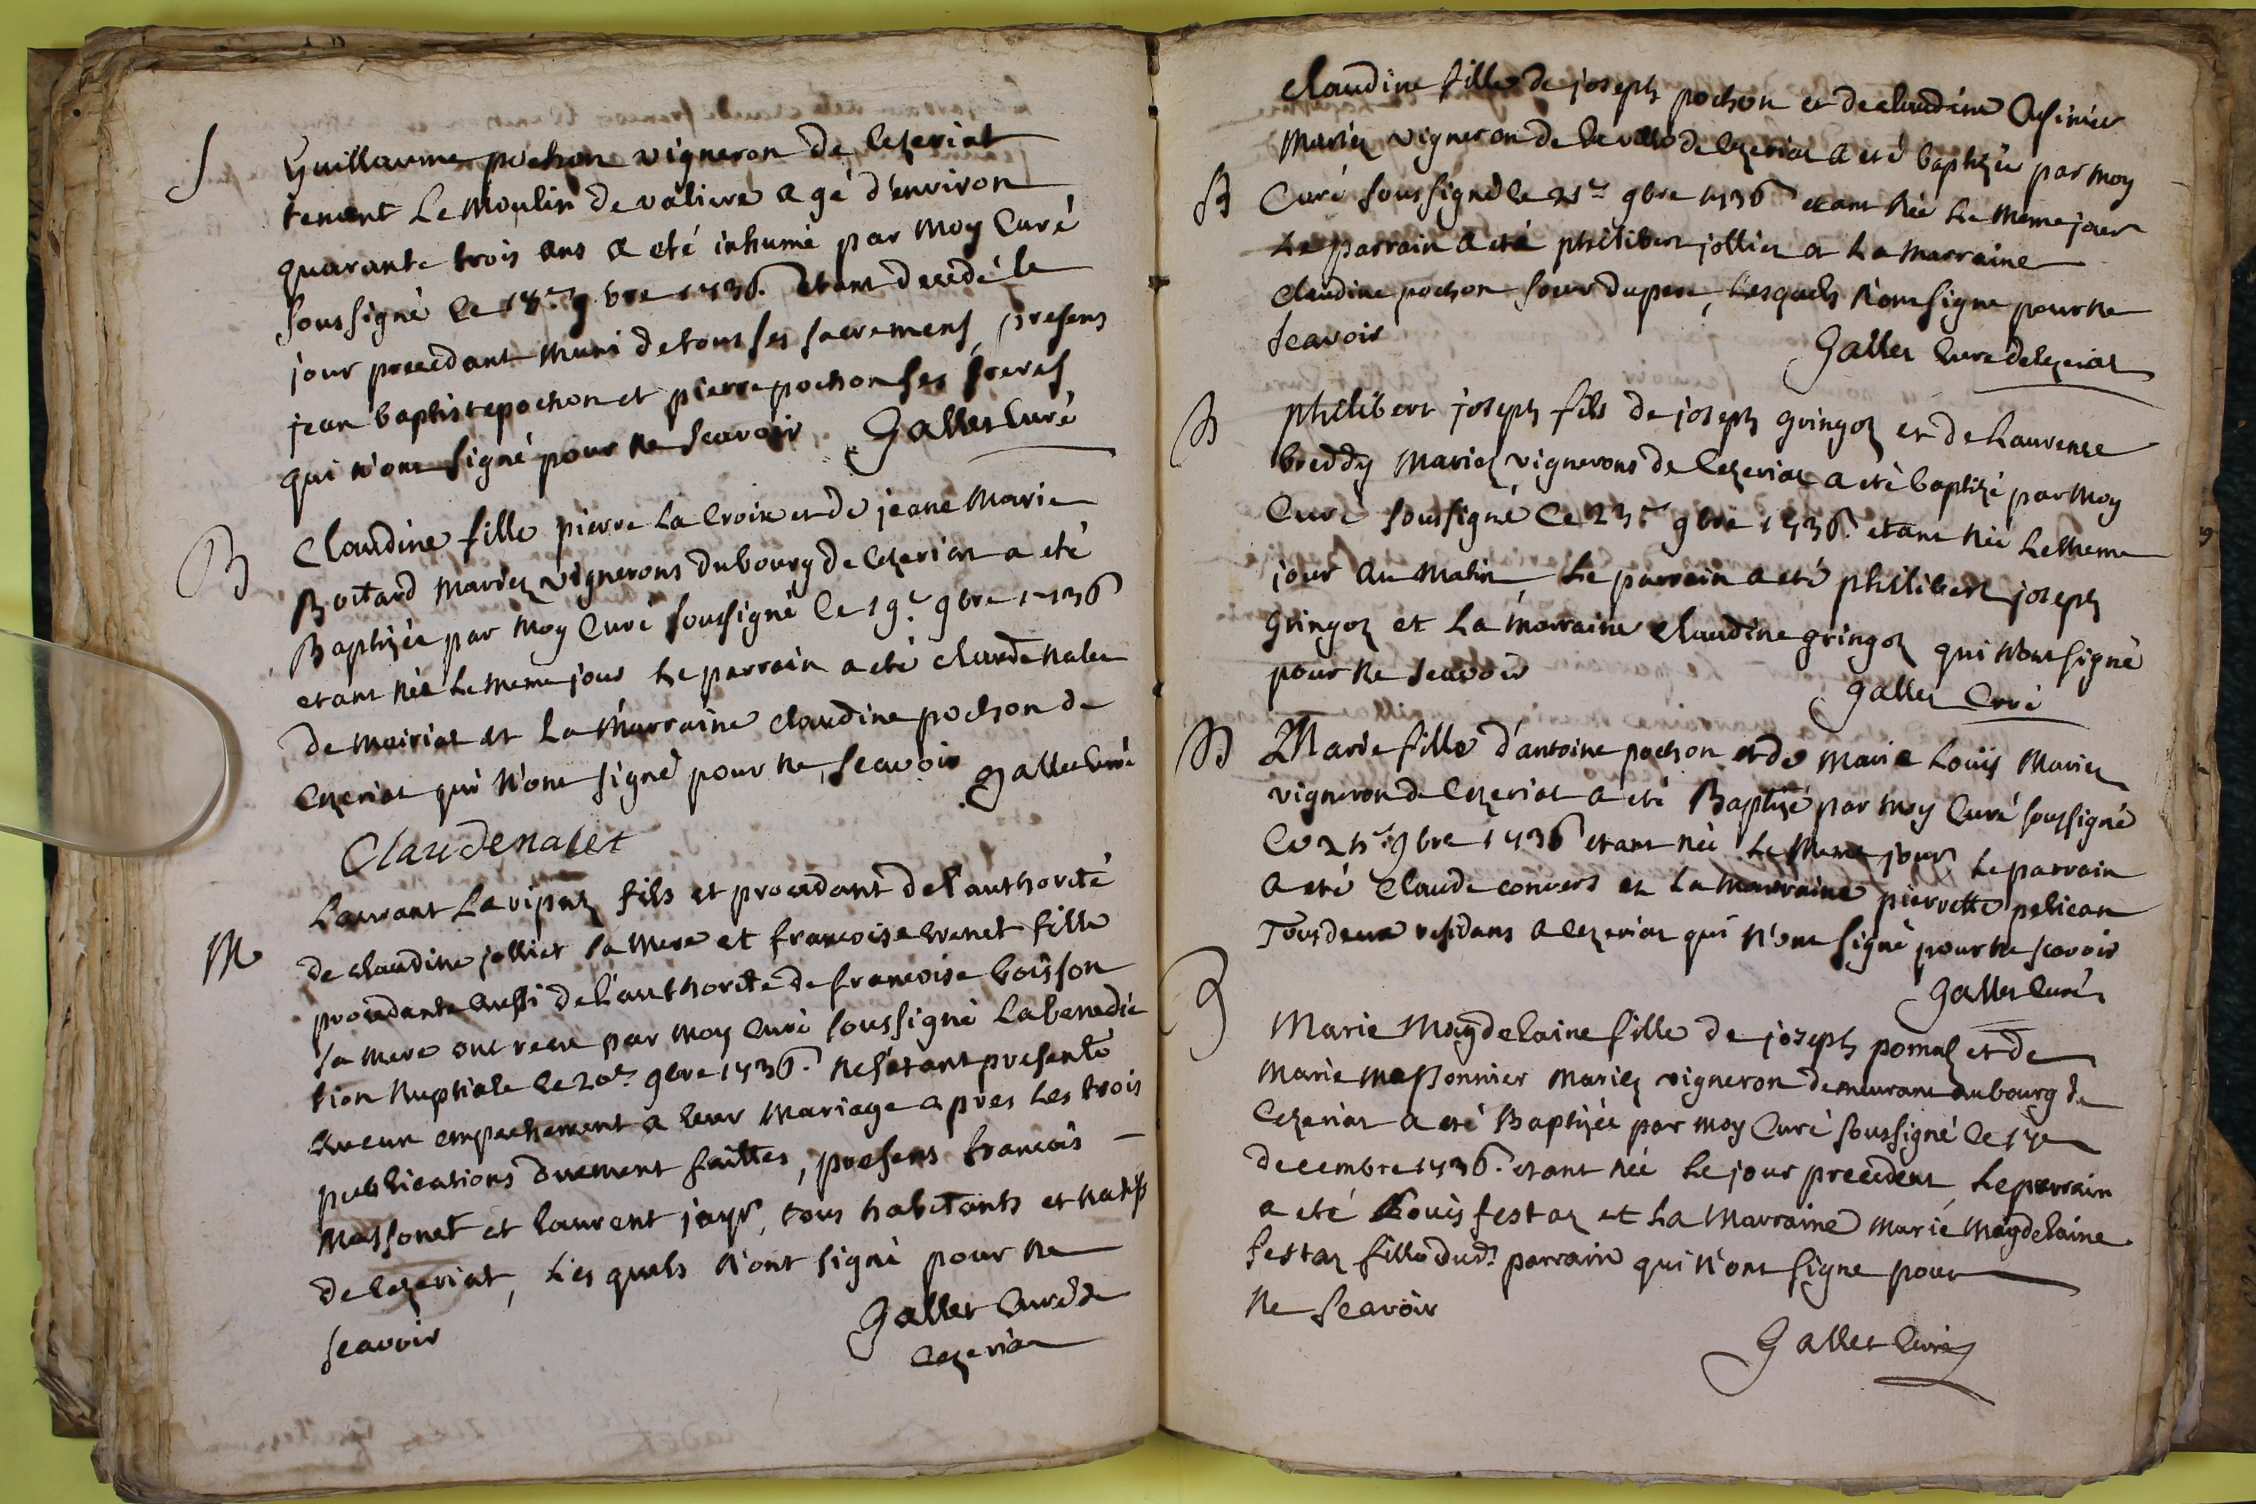 S
Guillaume pochon vigneron de Cezeriat
tenant Le Moulin de valiere agé d'environ
quarante trois ans a eté inhumé par Moy Curé
soussigné le 18e 9bre 1736. etant decedé le
jour precedant muni de tout ses sacremens, presens
jean baptiste pochon et pierre pochon ses freres
qui n'ont signé pour ne scavoir Gallet Curé
B
Claudine fille pierre La Croix et de jeane Marie
Boitard Mariez vignerons du bourg de Cezeriat a eté
Baptizée par Moy Curé soussigné le 19e 9bre 1736
etant née Le meme jour Le parrain a eté claude nalet
de Meiriat et La Marraine claudine pochon de
Cezeriat qui n'ont signé pour ne scavoir Gallet Curé
Claude nalet
M
Laurant Lavipaz fils et procedant de l'authorité
de claudine jolliet sa Mere et francoise brenet fille
procedante aussi de l'authorité de francoise boisson
sa mere ont receu par moy Curé soussigné La benedic
tion Nuptiale le 20e 9bre 1736. ne s'etant presenté
aucun empechement a leur Mariage apres Les trois
publications duement faittes, presens francois
Massonet et laurent jayr, tous habitants et natifs
de Cezeriat, Les quels n'ont signé pour ne
scavoir Gallet Curé de
Cezeriat
claudine fille de joseph pochon et de claudine
Mariez vigneron de la ville de Cezeriat a eté baptizée par Moy
B
Curé soussigné le 21e 9bre 1736 etant née Le meme jour
Le parrain a eté philibert jolliet et La Marraine
claudine pochon soeur du pere, Lesquels n'ont signe pour ne
scavoir
Gallet Curé de Cezeriat
B
philibert joseph fils de joseph gringoz et de Laurence
breddy Mariez vignerons de Cezeriat a eté baptizé par Moy
Curé soussigné le 23e 9bre 1736. etant née Le Meme
jour au Matin, Le parrain a eté philibert joseph
gringoz et La Marraine claudine gringoz qui n'ont signé
pour ne scavoir
Gallet Curé
B
Marie fille d'antoine pochon et de Marie Louïs Mariez
vigneron de Cezeriat a eté Baptizé par Moy Curé soussigné
Ce 25e 9bre 1736 etant née Le Meme jour, Le parrain
a eté Claude convers et La Marraine pierrette pelican
Tous deux residans a Cezeriat qui n'ont signé pour ne scavoir
Gallet Curé
B
Marie Magdelaine fille de joseph pomaz et de
Marie Massonnier Mariez vigneron demeurant au bourg de
Cezeriat a eté Baptizée par Moy Curé soussigné le
decembre 1736. etant née Le jour precedent Le parrain
a eté Louis festaz et La Marraine Marie Magdelaine
festaz fille dud. parrain qui n'ont signe pour
ne scavoir
Gallet Curé